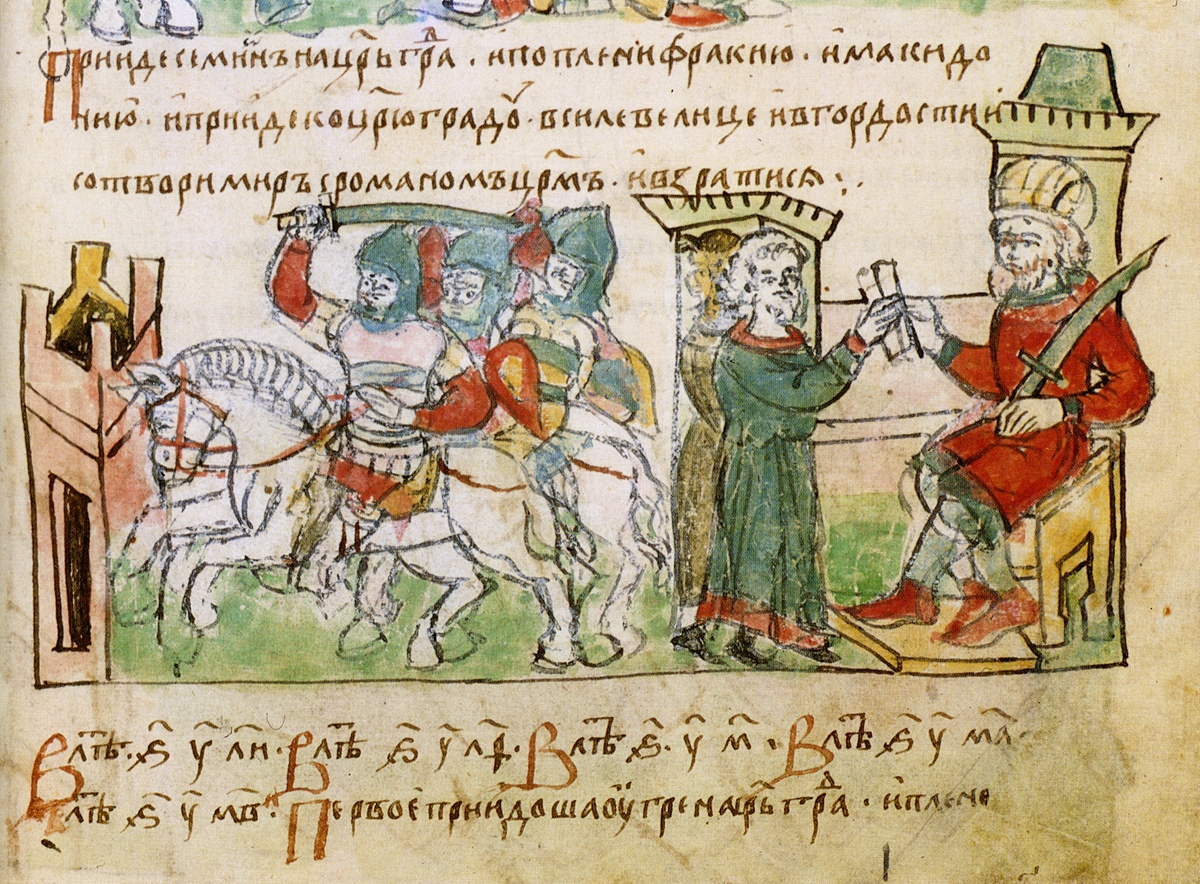 Прииде семиѡнъ на цр҃ьгра д҃ · и поплени фракию · и макидо
нию · и прииде ко цр҃юградꙋ · в силе велице и в гордости и
сотвори миръ с романомъ цр҃мъ · и взратися ·
В лт҃ѣ · ҂ѕ҃ у҃ л҃и · В лт҃ѣ ҂ѕ҃ у҃ л҃ѳ · В лт҃ѣ ҂ѕ҃ · у҃ м҃ · В лт҃ѣ ҂ѕ҃ у҃ м҃а ·
В лт҃ѣ ҂ѕ҃ у҃ м҃в · Первое приидоша оугре на цр҃ьгра д҃ · и плене